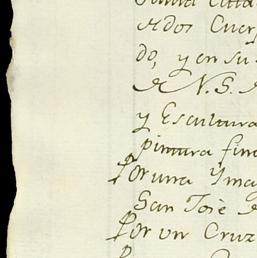 de dos Cuer
do, y en su
de N. S. d
y Escultura
pintura fin
Por una Yma
San Jose
Por un Cruz